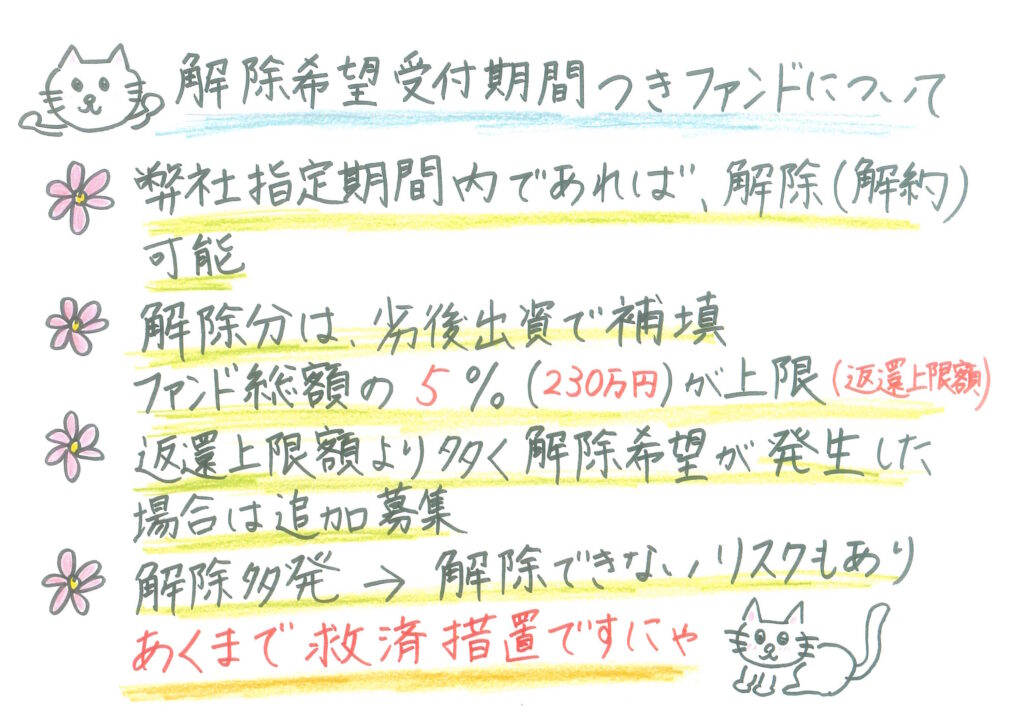 解除希望受付期間つきファンドについて
弊社指定期間内であれば、解除(解約)
可能
解除分は、劣後出資で補填
ファンド総額の5%(230万円)が上限(返還上限額)
返還上限額より多く解除希望が発生した
場合は追加募集
解除多発→解除できないリスクもあり
あくまで救済措置ですにゃ